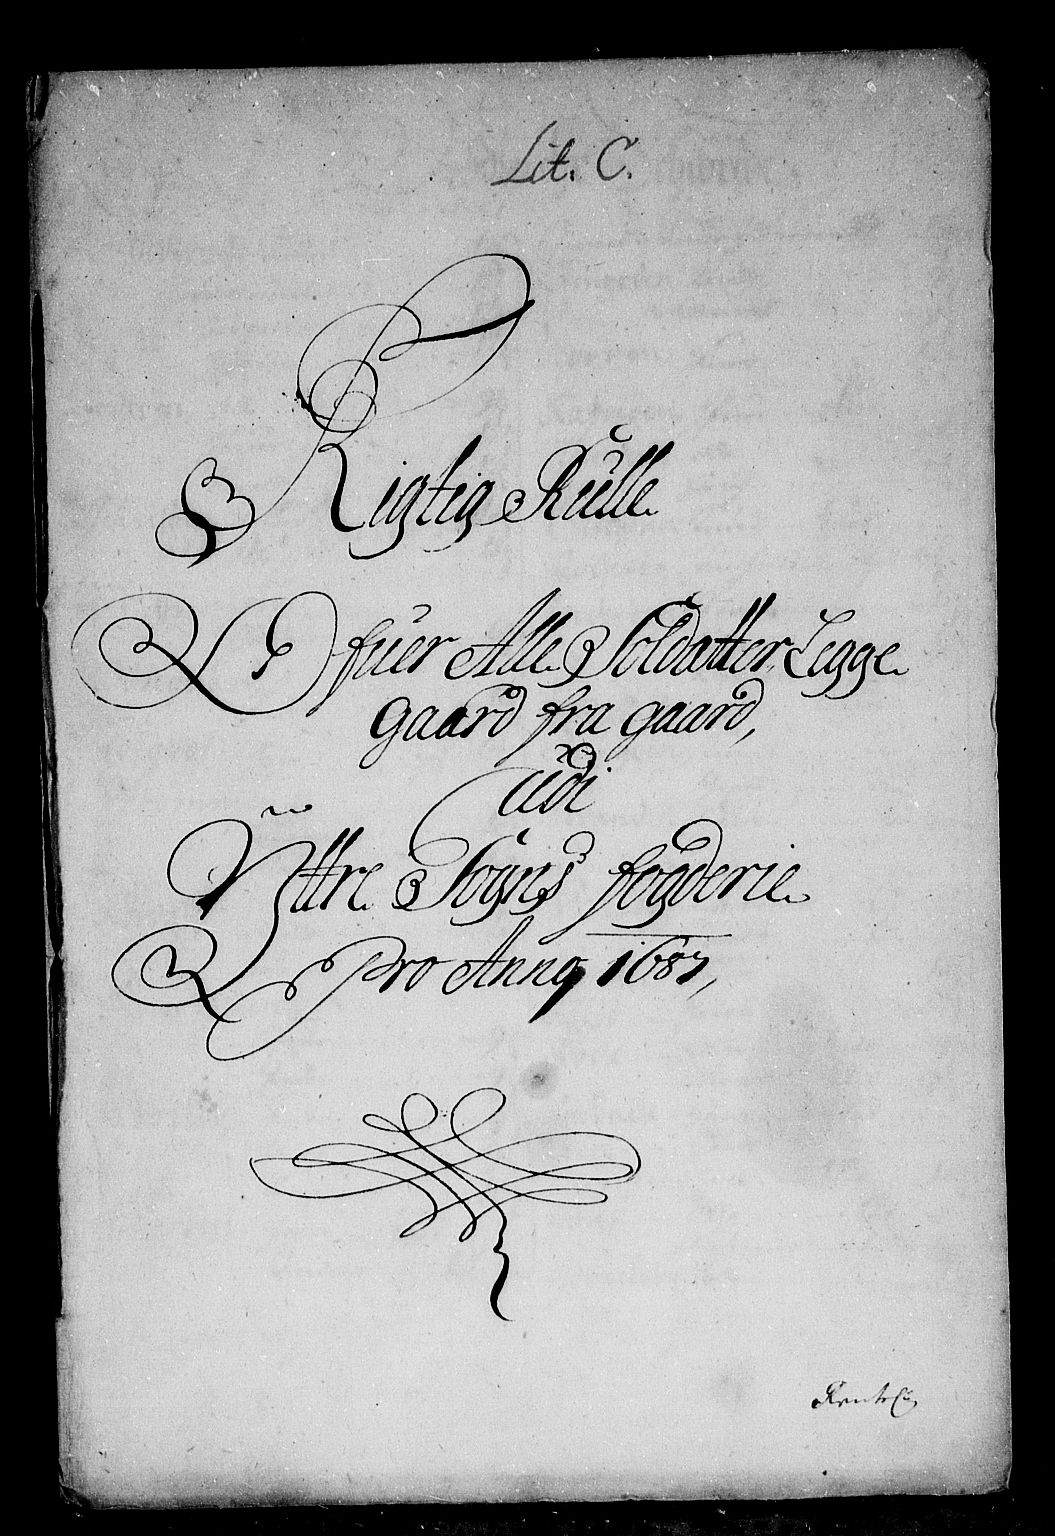 Lit. C.
Rigtig Rulle
Ofuer Alle Soldatter Legge
gaard fra gaard,
udi
Ÿttre Sogns fogderie
Pro Anno 1687,